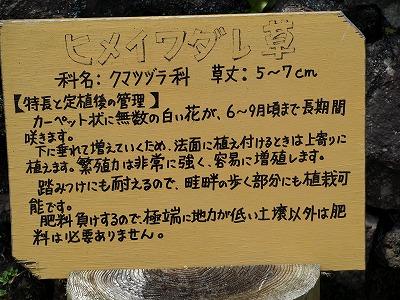 ヒメイワダレ草
科名：クマツヅラ科　草丈：5～7cm
【特長と定植後の管理】
カーペット状に無数の白い花が、6～9月頃まで長期間
咲きます。
下に垂れて増えていくため、法面に植え付けるときは上寄りに
植えます。繁殖力は非常に強く、容易に増殖します。
踏みつけにも耐えるので、畦畔の歩く部分にも植栽可
能です。
肥料負けするので、極端に地力が低い土壌以外は肥
料は必要ありません。